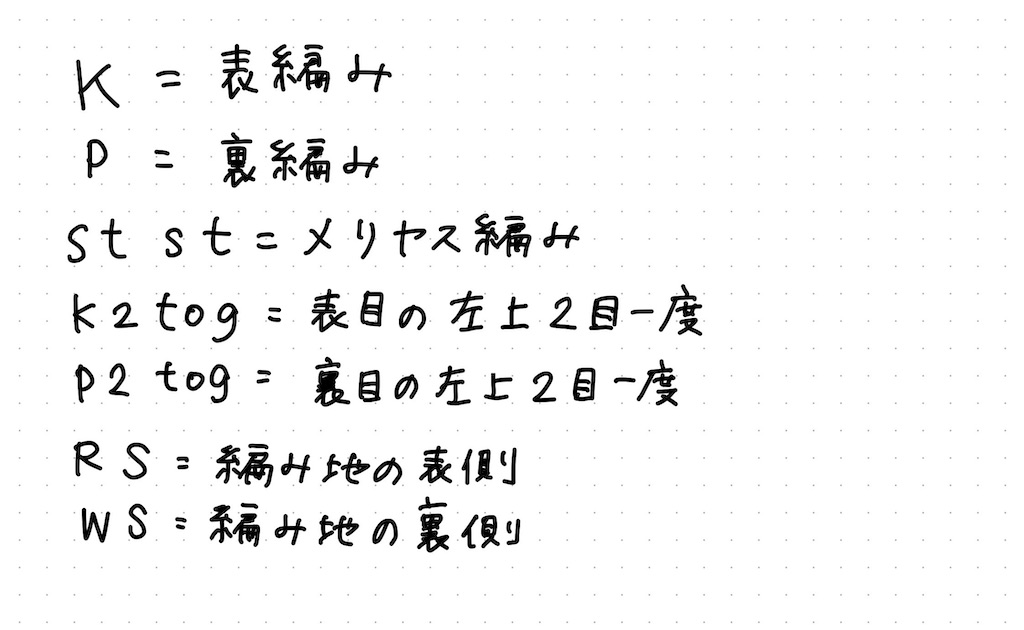 K = 表編み
P = 裏編み
st st = メリヤス編み
k2tog = 表目の左上2目一度
p2tog = 裏目の左上2目一度
RS = 編み地の表側
WS = 編み地の裏側